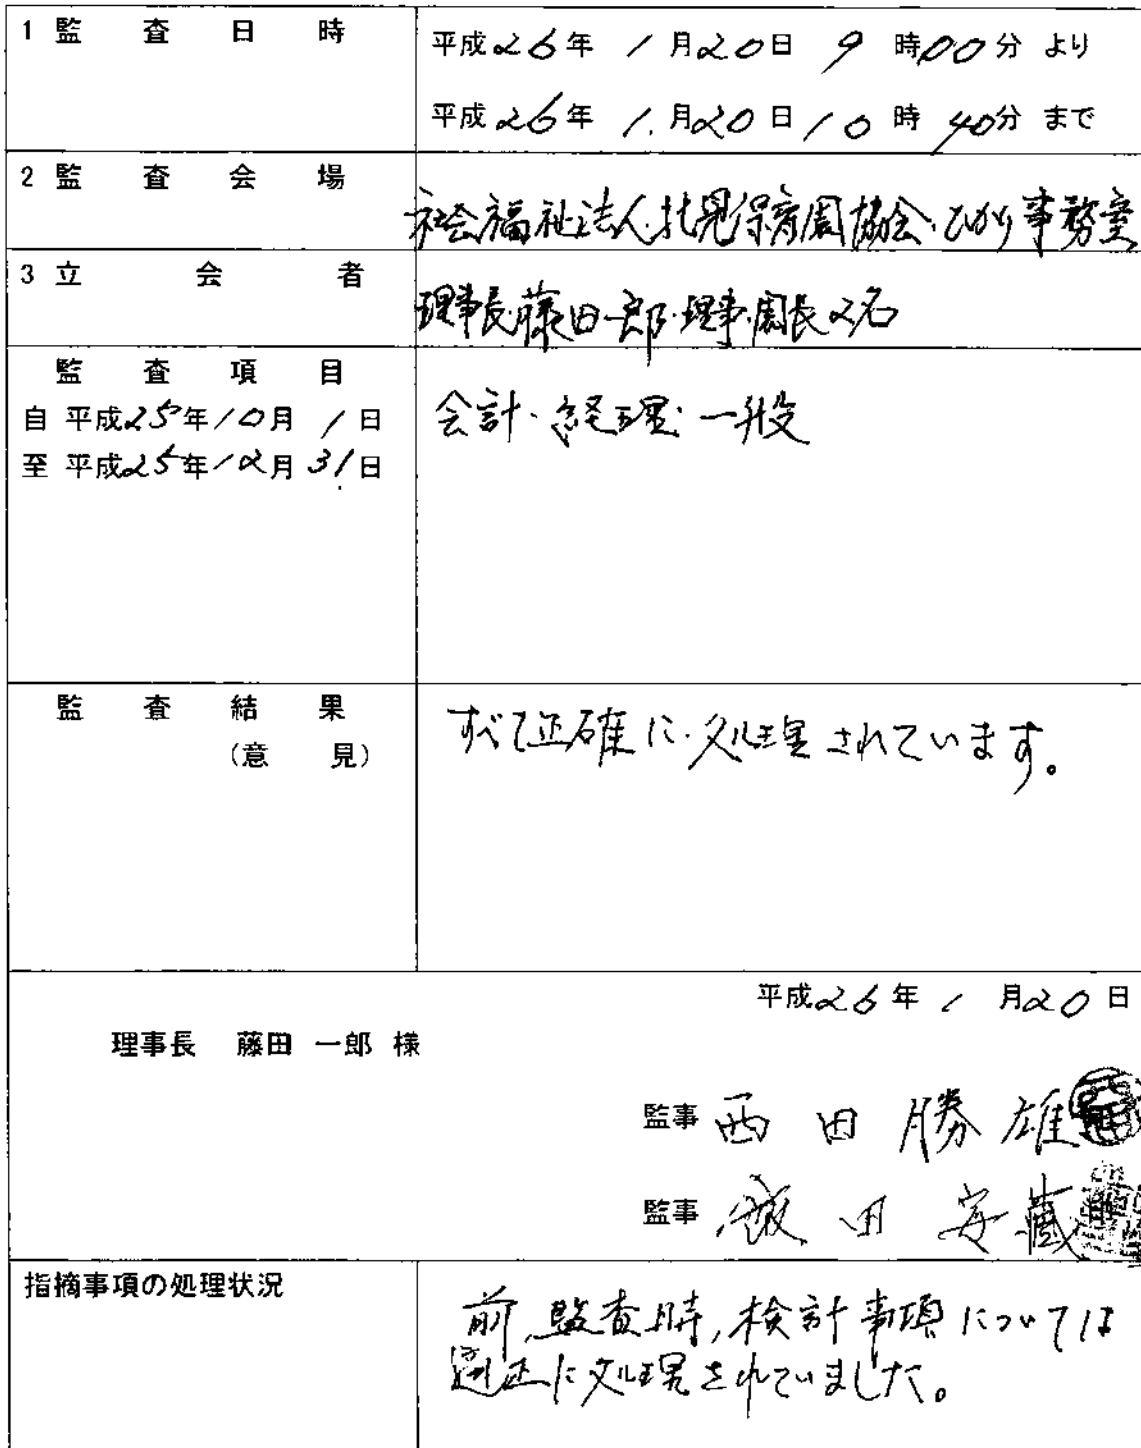 1 監査日時
平成26年 1月20日 9時00分 より
平成26年 1月20日 10時40分 まで
2 監査会場
社会福祉法人 北見保育園協会・ひかり事務室
3 立会者
理事長藤田一郎・理事・園長2名
監査項目
自 平成25年10月 1日
至 平成25年12月 31日
会計・経理・一般
監査結果
(意見)
すべて正確に処理されています。
平成26年 1月20日
理事長 藤田 一郎 様
監事 西田 勝雄
監事 飯田 安蔵
指摘事項の処理状況
前、監査時、検討事項については
適正に処理されていました。